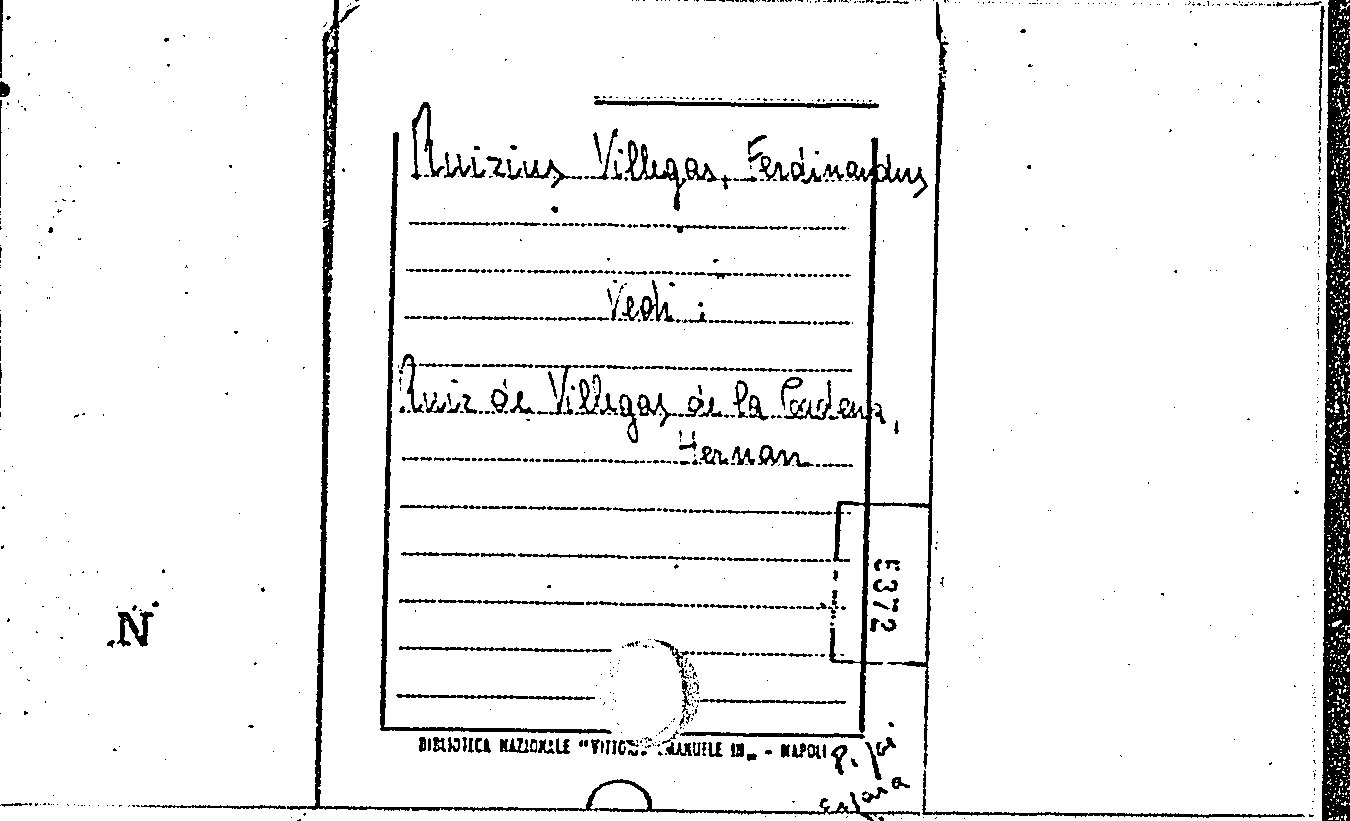 Ruizius Villegas, Ferdinandus
Vedi:
Ruiz de Villegas de la Cadena,
Hernan
5372
N
BIBLIOTECA NAZIONALE "VITTORIO EMANUELE III" - NAPOLI